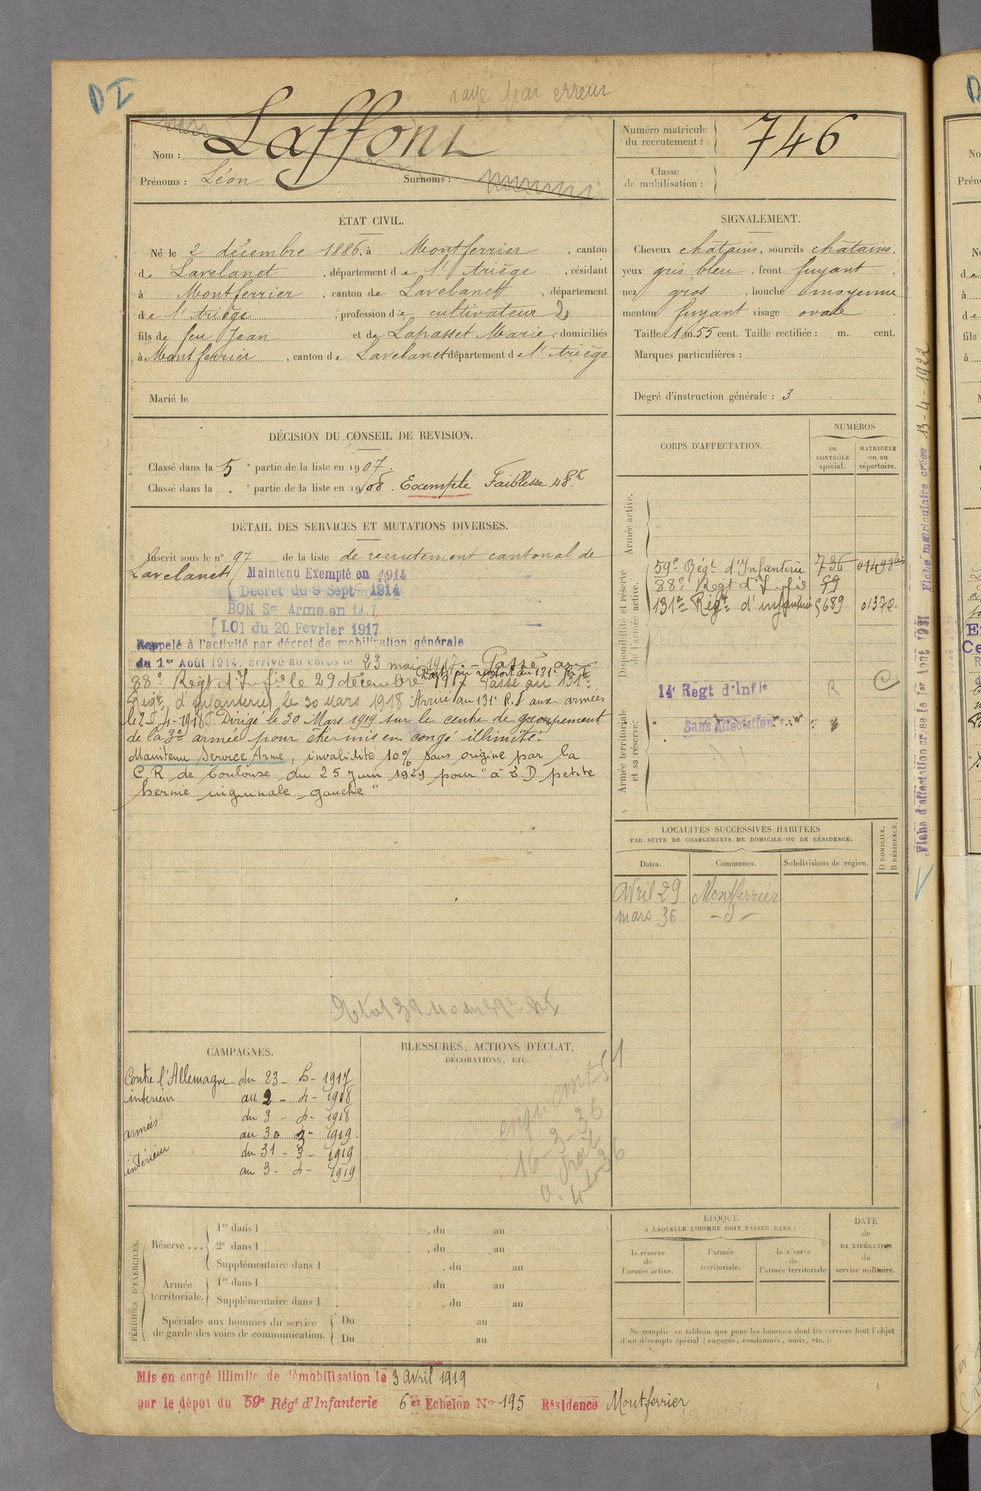 DI
rayé par erreur
Nom : Laffont
Prénoms : Léon Surnoms :
Numéro matricule du recrutement : 746
Classe de mobilisation :
ÉTAT CIVIL.
Né le 2 décembre 1886, à Montferrier, canton
de Lavelanet, département de l'Ariège, résidant
à Montferrier, canton de Lavelanet, département
de l'Ariège, profession de cultivateur 2
fils de feu Jean et de Lapasset Marie, domiciliés
à Montferrier, canton de Lavelanet département de l'Ariège
Marié le
SIGNALEMENT.
Cheveux chatains, sourcils chatains,
yeux gris bleu, front fuyant,
nez gros, bouche moyenne
menton fuyant visage ovale
Taille : 1 m. 55 cent. Taille rectifiée : m. cent.
Marques particulières :
Degré d'instruction générale : 3
DÉCISION DU CONSEIL DE REVISION.
Classé dans la 5e partie de la liste en 1907.
Classé dans la . e partie de la liste en 1908. Exempté Faiblesse 48k
DÉTAIL DES SERVICES ET MUTATIONS DIVERSES.
Inscrit sous le n° 97 de la liste de recrutement cantonal de
Lavelanet
Maintenu Exempté en 1914
(Decret du 9 Sept 1914
BON Sce Armé en 1917
[LOI du 20 Fevrier 1917
Rappelé à l'activité par décret de mobilisation générale
du 1er Août 1914, arrivé au corps le 23 mai 1917. - Passé au
88e Regt d'Infie le 29 décembre 1917 Passé au 131e
Régt d'infanterie le 30 Mars 1918 Arrivé au 131e R.I aux armées
le 25-4-1918. Dirigé le 30 Mars 1919 sur le centre de groupement
de la 3e armée pour être mis en congé illimité.
Maintenu Service Armé, invalidité 10% sans origine par la
C.R de Toulouse du 25 Juin 1929 pour "à L. D petite
hernie inguinale gauche"
CORPS D'AFFECTATION.
NUMÉROS
au CONTRÔLE spécial.
MATRICULE ou au répertoire.
Armée active.
Disponibilité et réserve de l'armée active.
59e Régt d'Infanterie 736
88e Regt d'Infie 99
131e Régt d'infanterie 5689 01372
Armée territoriale et sa réserve.
14e Regt d'Infie R C
Sans Affectation
Fiche d'affectation créée le 1er Aout 1931
Fiche matriculaire créée 13-4-1922
LOCALITÉS SUCCESSIVES HABITÉES
PAR SUITE DE CHANGEMENTS DE DOMICILE OU DE RÉSIDENCE.
Dates. Communes. Subdivisions de région. D DOMICILE. R RÉSIDENCE.
Avril 29 Montferrier
mars 36 - d -
CAMPAGNES.
Contre l'Allemagne du 23 - 5 - 1917
intérieur au 2 - 4 - 1918
du 3 - 4 - 1918
armées au 30 3 - 1919.
du 31 - 3 - 1919
intérieur au 3 - 4 - 1919
BLESSURES, ACTIONS D'ÉCLAT,
DÉCORATIONS, ETC.
16-3-36
PÉRIODES D'EXERCICES.
Réserve ... 1re dans l , du au
2e dans l , du au
Supplémentaire dans l , du au
Armée territoriale. 1re dans l , du au
Supplémentaire dans l , du au
Spéciales aux hommes du service de garde des voies de communication. Du au
Du au
ÉPOQUE
À LAQUELLE L'HOMME DOIT PASSER DANS :
la réserve de l'armée active.
l'armée territoriale.
la réserve de l'armée territoriale
DATE de LA LIBÉRATION du service militaire.
Ne remplir ce tableau que pour les hommes dont les services font l'objet
d'un décompte spécial (engagés, condamnés, omis, etc.).
Mis en congé illimité de démobilisation le 3 Avril 1919
par le dépot du 59e Régt d'Infanterie 6e Echelon No 195 Résidence Montferrier